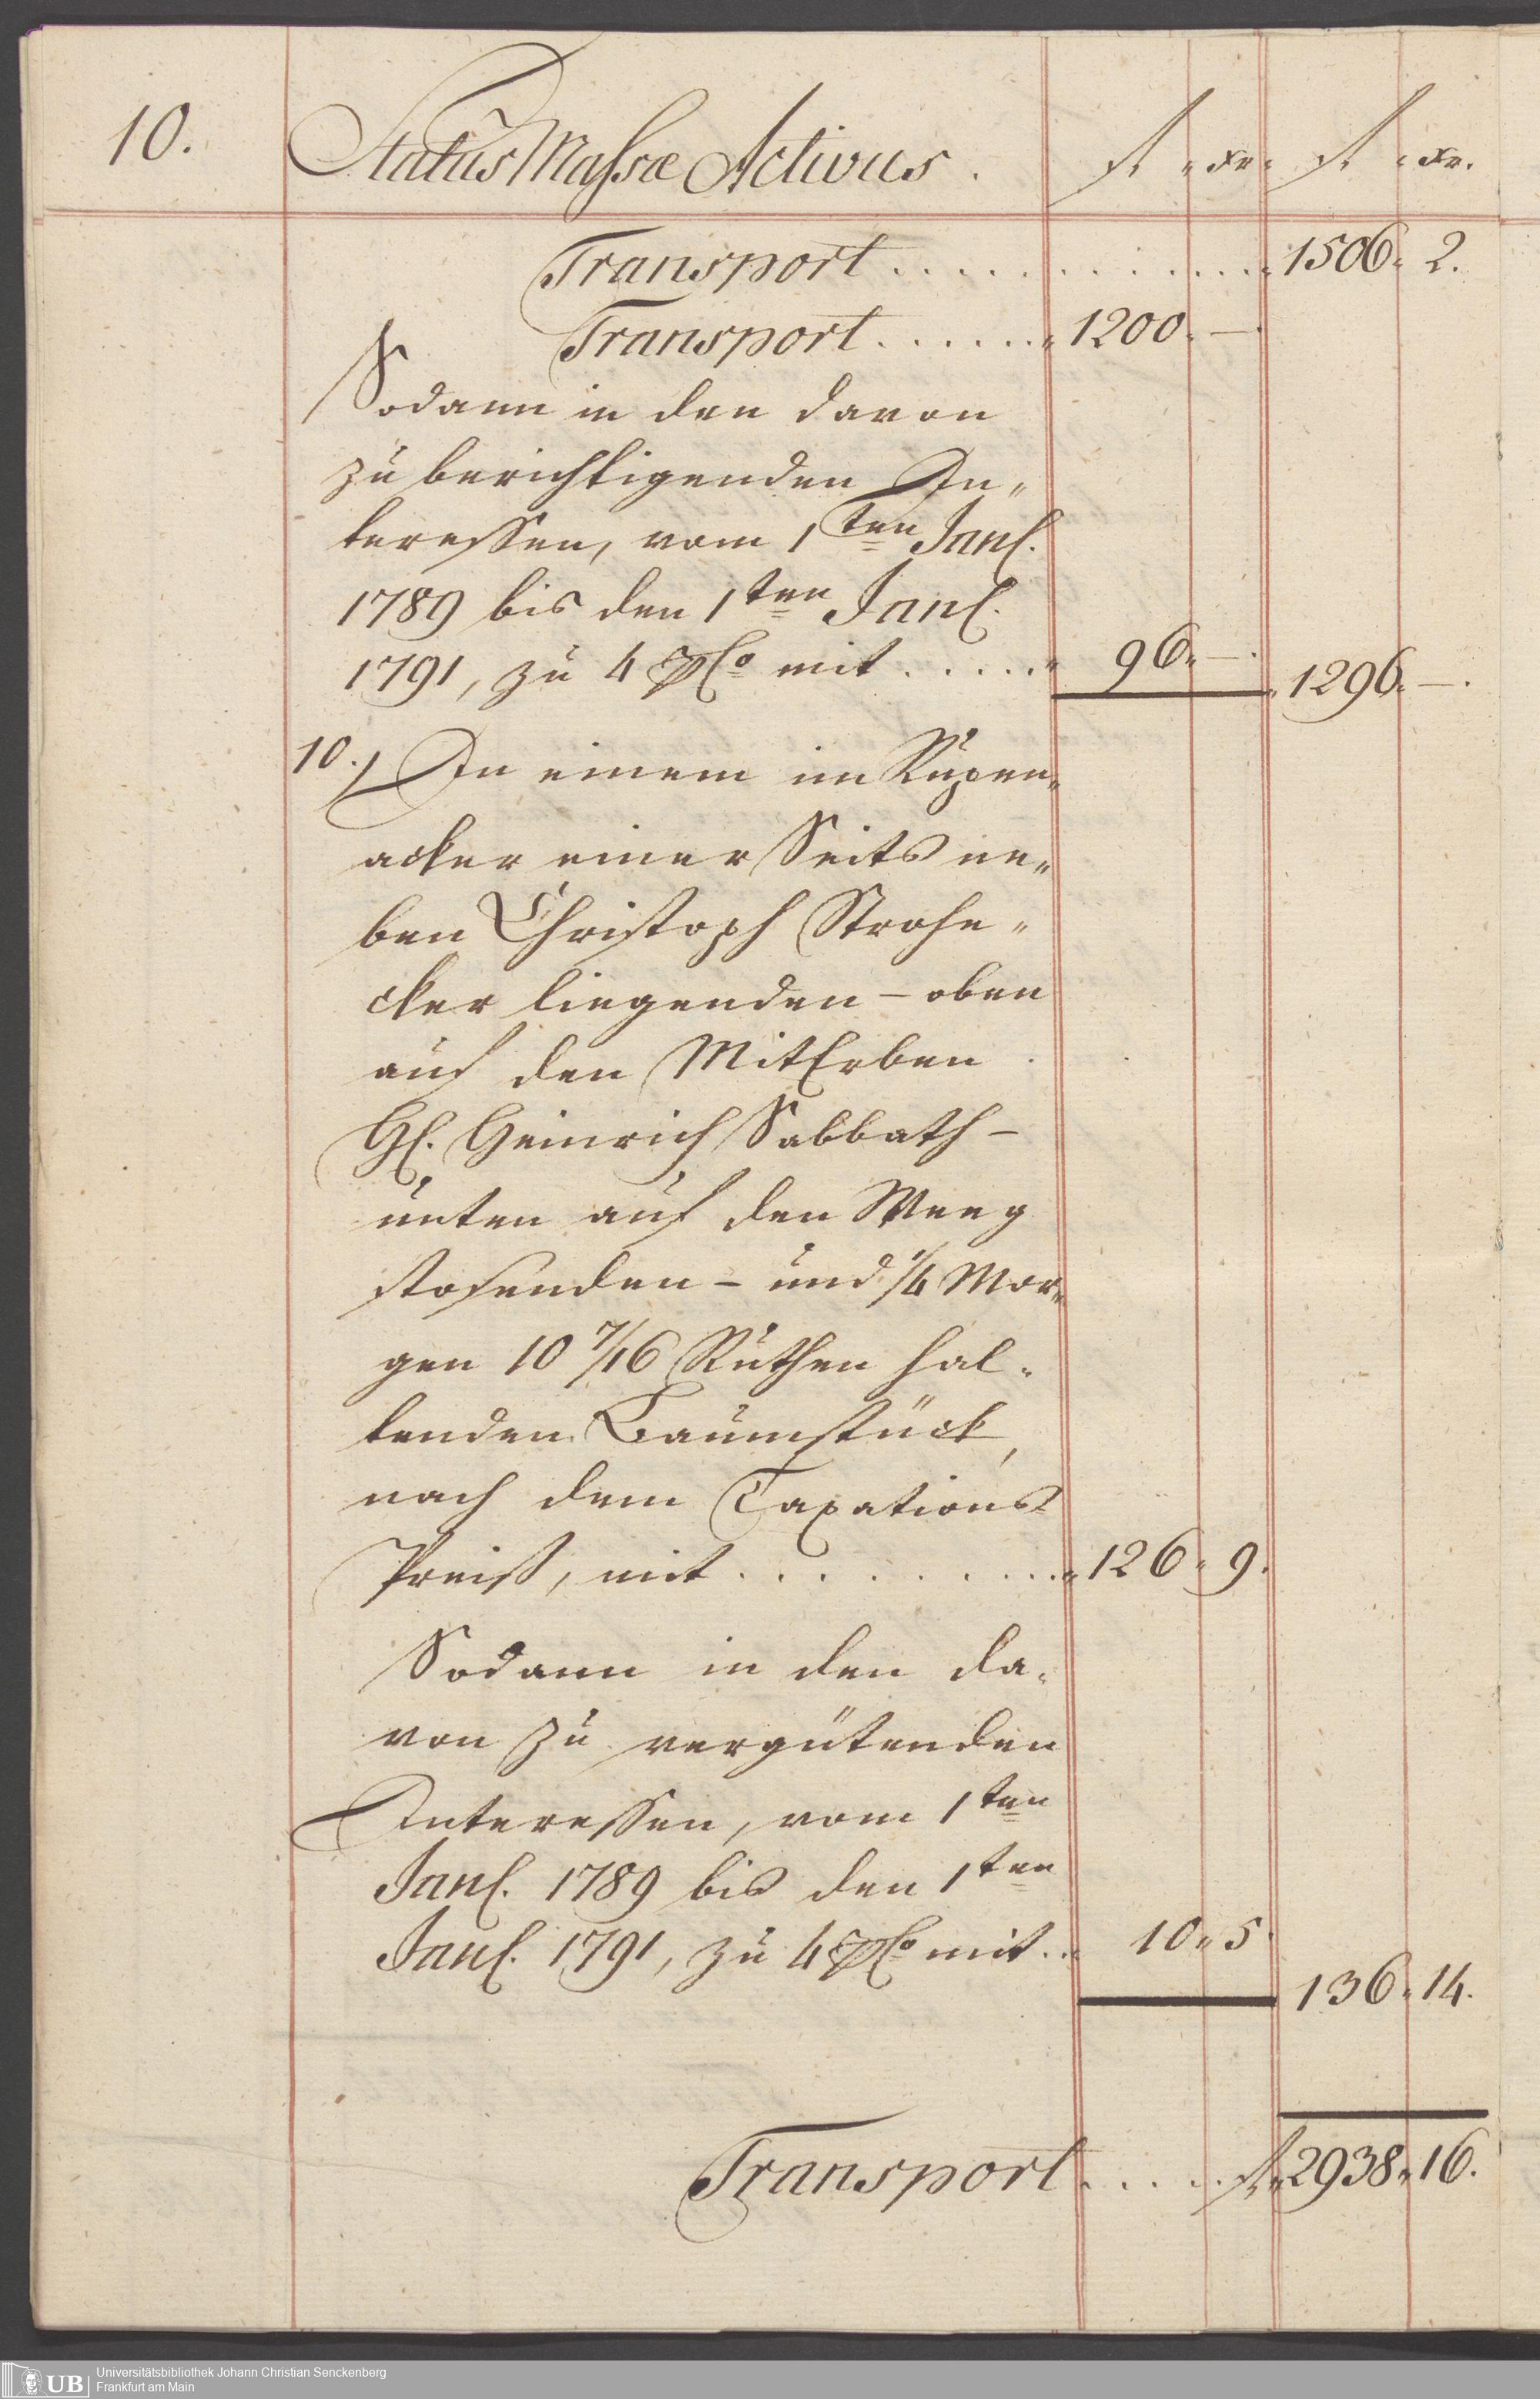 10.
Status Massæ Activus.
fl. xr. fl. xr.
Transport . . . . . . . . . . . . . 1506. 2.
Transport . . . . . . . 1200. —.
Sodann in den davon
zu berichtigenden In„
teressen, vom 1ten Jan.
1789 bis den 1ten Jan.
1791, zu 4 pCo mit . . . . . 96. —. 1296. —.
10.) In einem im Rüpen„
acker einer Seits ne„
ben Christoph Strohe„
cker liegenden – oben
auf den MitErben
H. Heinrich Sabbath –
unten auf den Weeg
stosenden – und 1/4 Mor„
gen 10 7/16 Ruthen hal„
tenden Baumstück,
nach dem Taxations
Preiß, mit . . . . . . . . . . 126. 9.
Sodann in den da„
von zu vergütenden
Interessen, vom 1ten
Jan. 1789 bis den 1ten
Jan. 1791, zu 4 pCo mit . . 10. 5.
136. 14.
Transport . . . . . fl. 2938. 16.
UB
Universitätsbibliothek Johann Christian Senckenberg
Frankfurt am Main